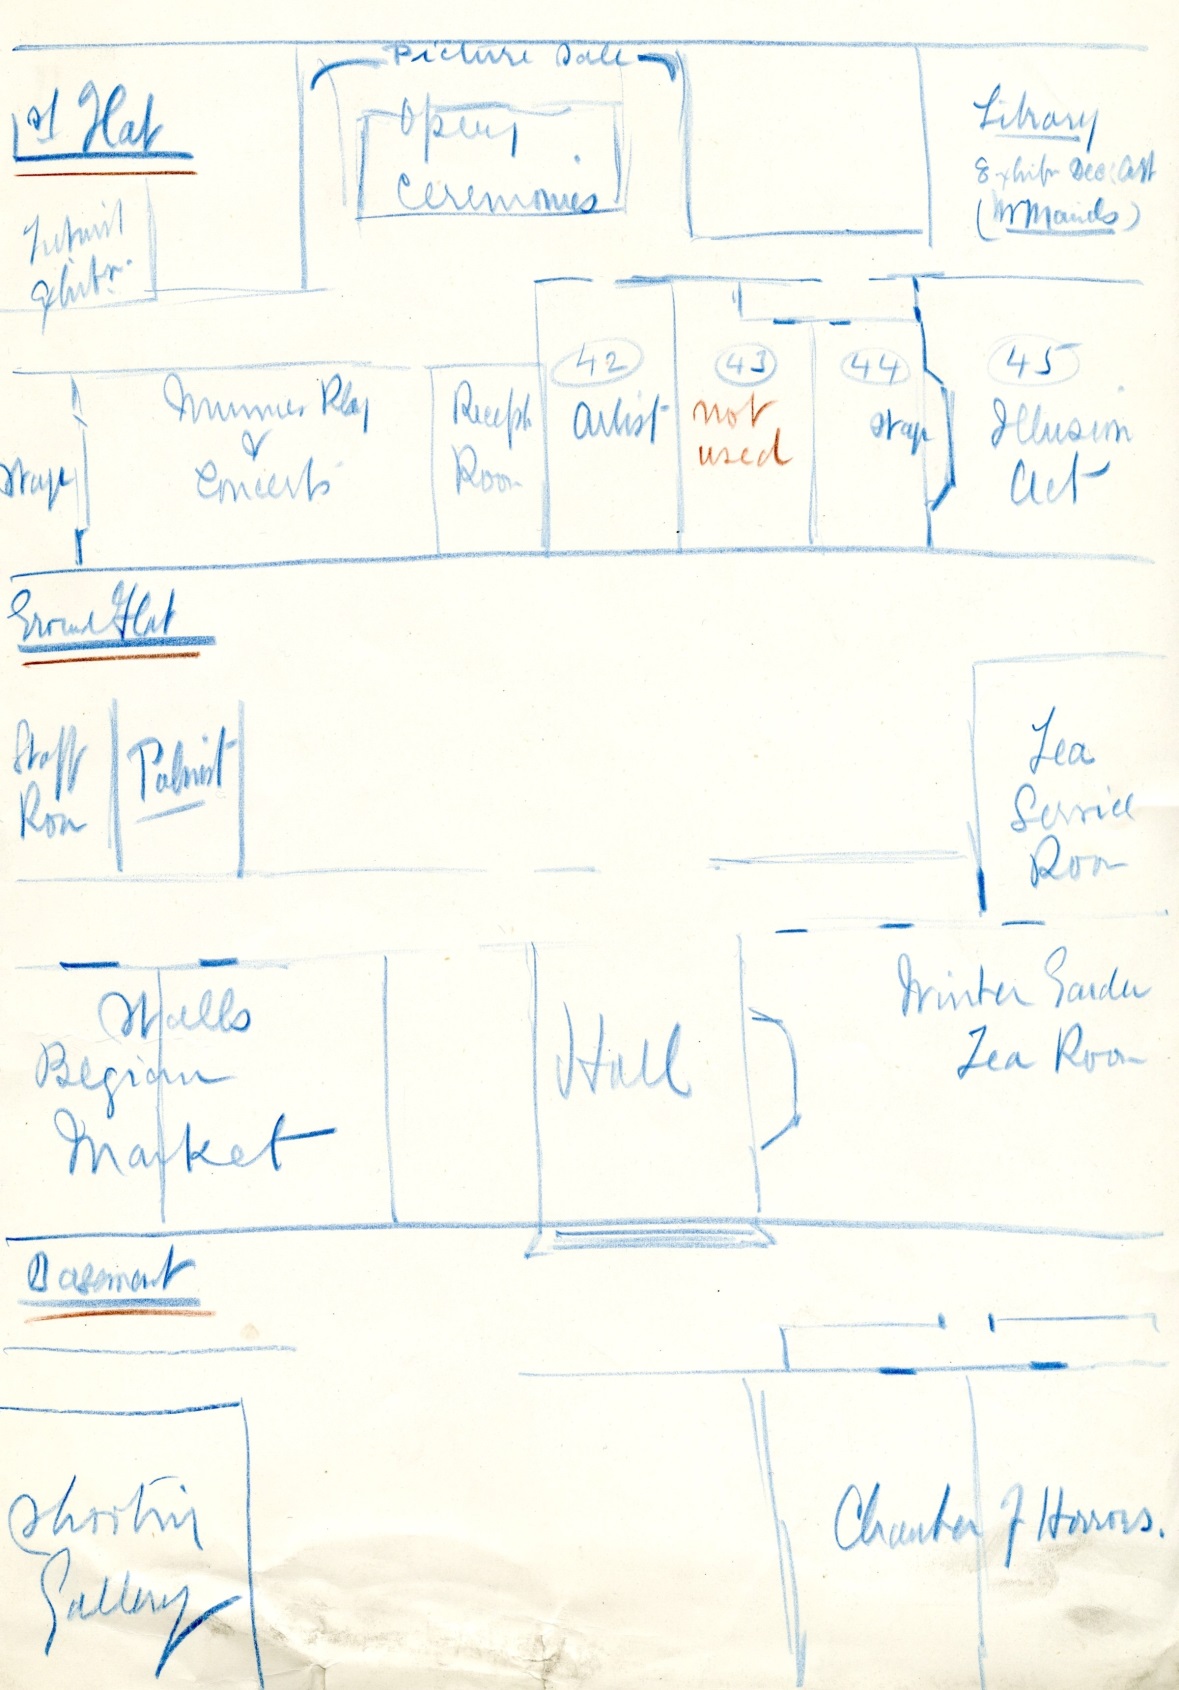 Picture Sale
1st Flat
Openg
Ceremonies
Library
Exhibn Dec: Art
Exhibn.
42
43
44
45
Mummies Play
&
Concerts
Stage
Recept
Room
Artist
not
used
Stage
Illusion
Act
Ground Flat
Staff
Room
Palmist
Tea
Service
Room
Stalls
Begian
Market
Hall
Winter Garden
Tea Room
Basement
Shooting
Gallery
Chamber of Horrors.